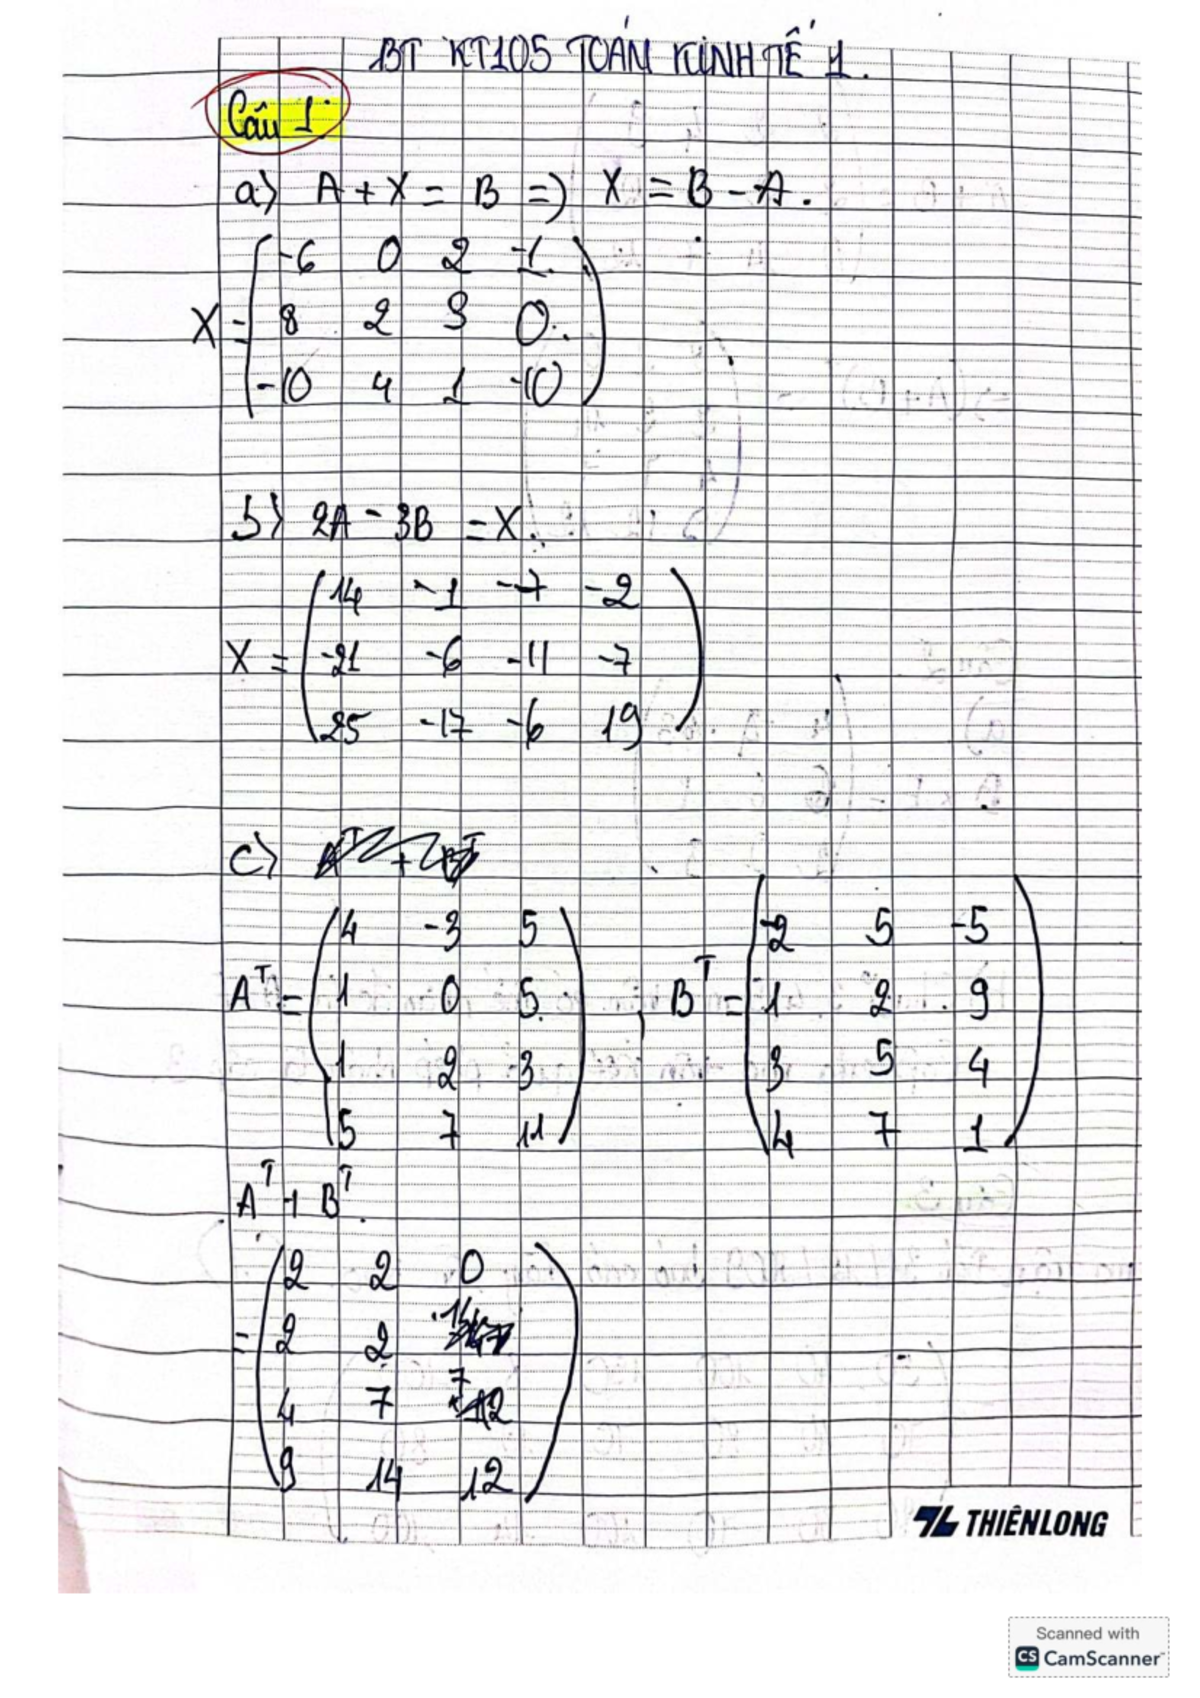 BT KT105 TOÁN KINH TẾ 1.
Câu 1:
a) A + X = B => X = B - A.
-6 0 2 -1
X = 8 2 3 0
-10 4 1 -10
b) 2A - 3B = X.
14 -1 -7 -2
X = -21 -6 -11 -7
25 -17 -6 19
c)
4 -3 5
-2 5 -5
Aᵀ = 1 0 5 , Bᵀ = 1 2 9
1 2 3
3 5 4
5 7 11
4 7 1
Aᵀ + Bᵀ.
2 2 0
= 2 2 14
4 7 7
9 14 12
THIÊN LONG
Scanned with
CS CamScanner